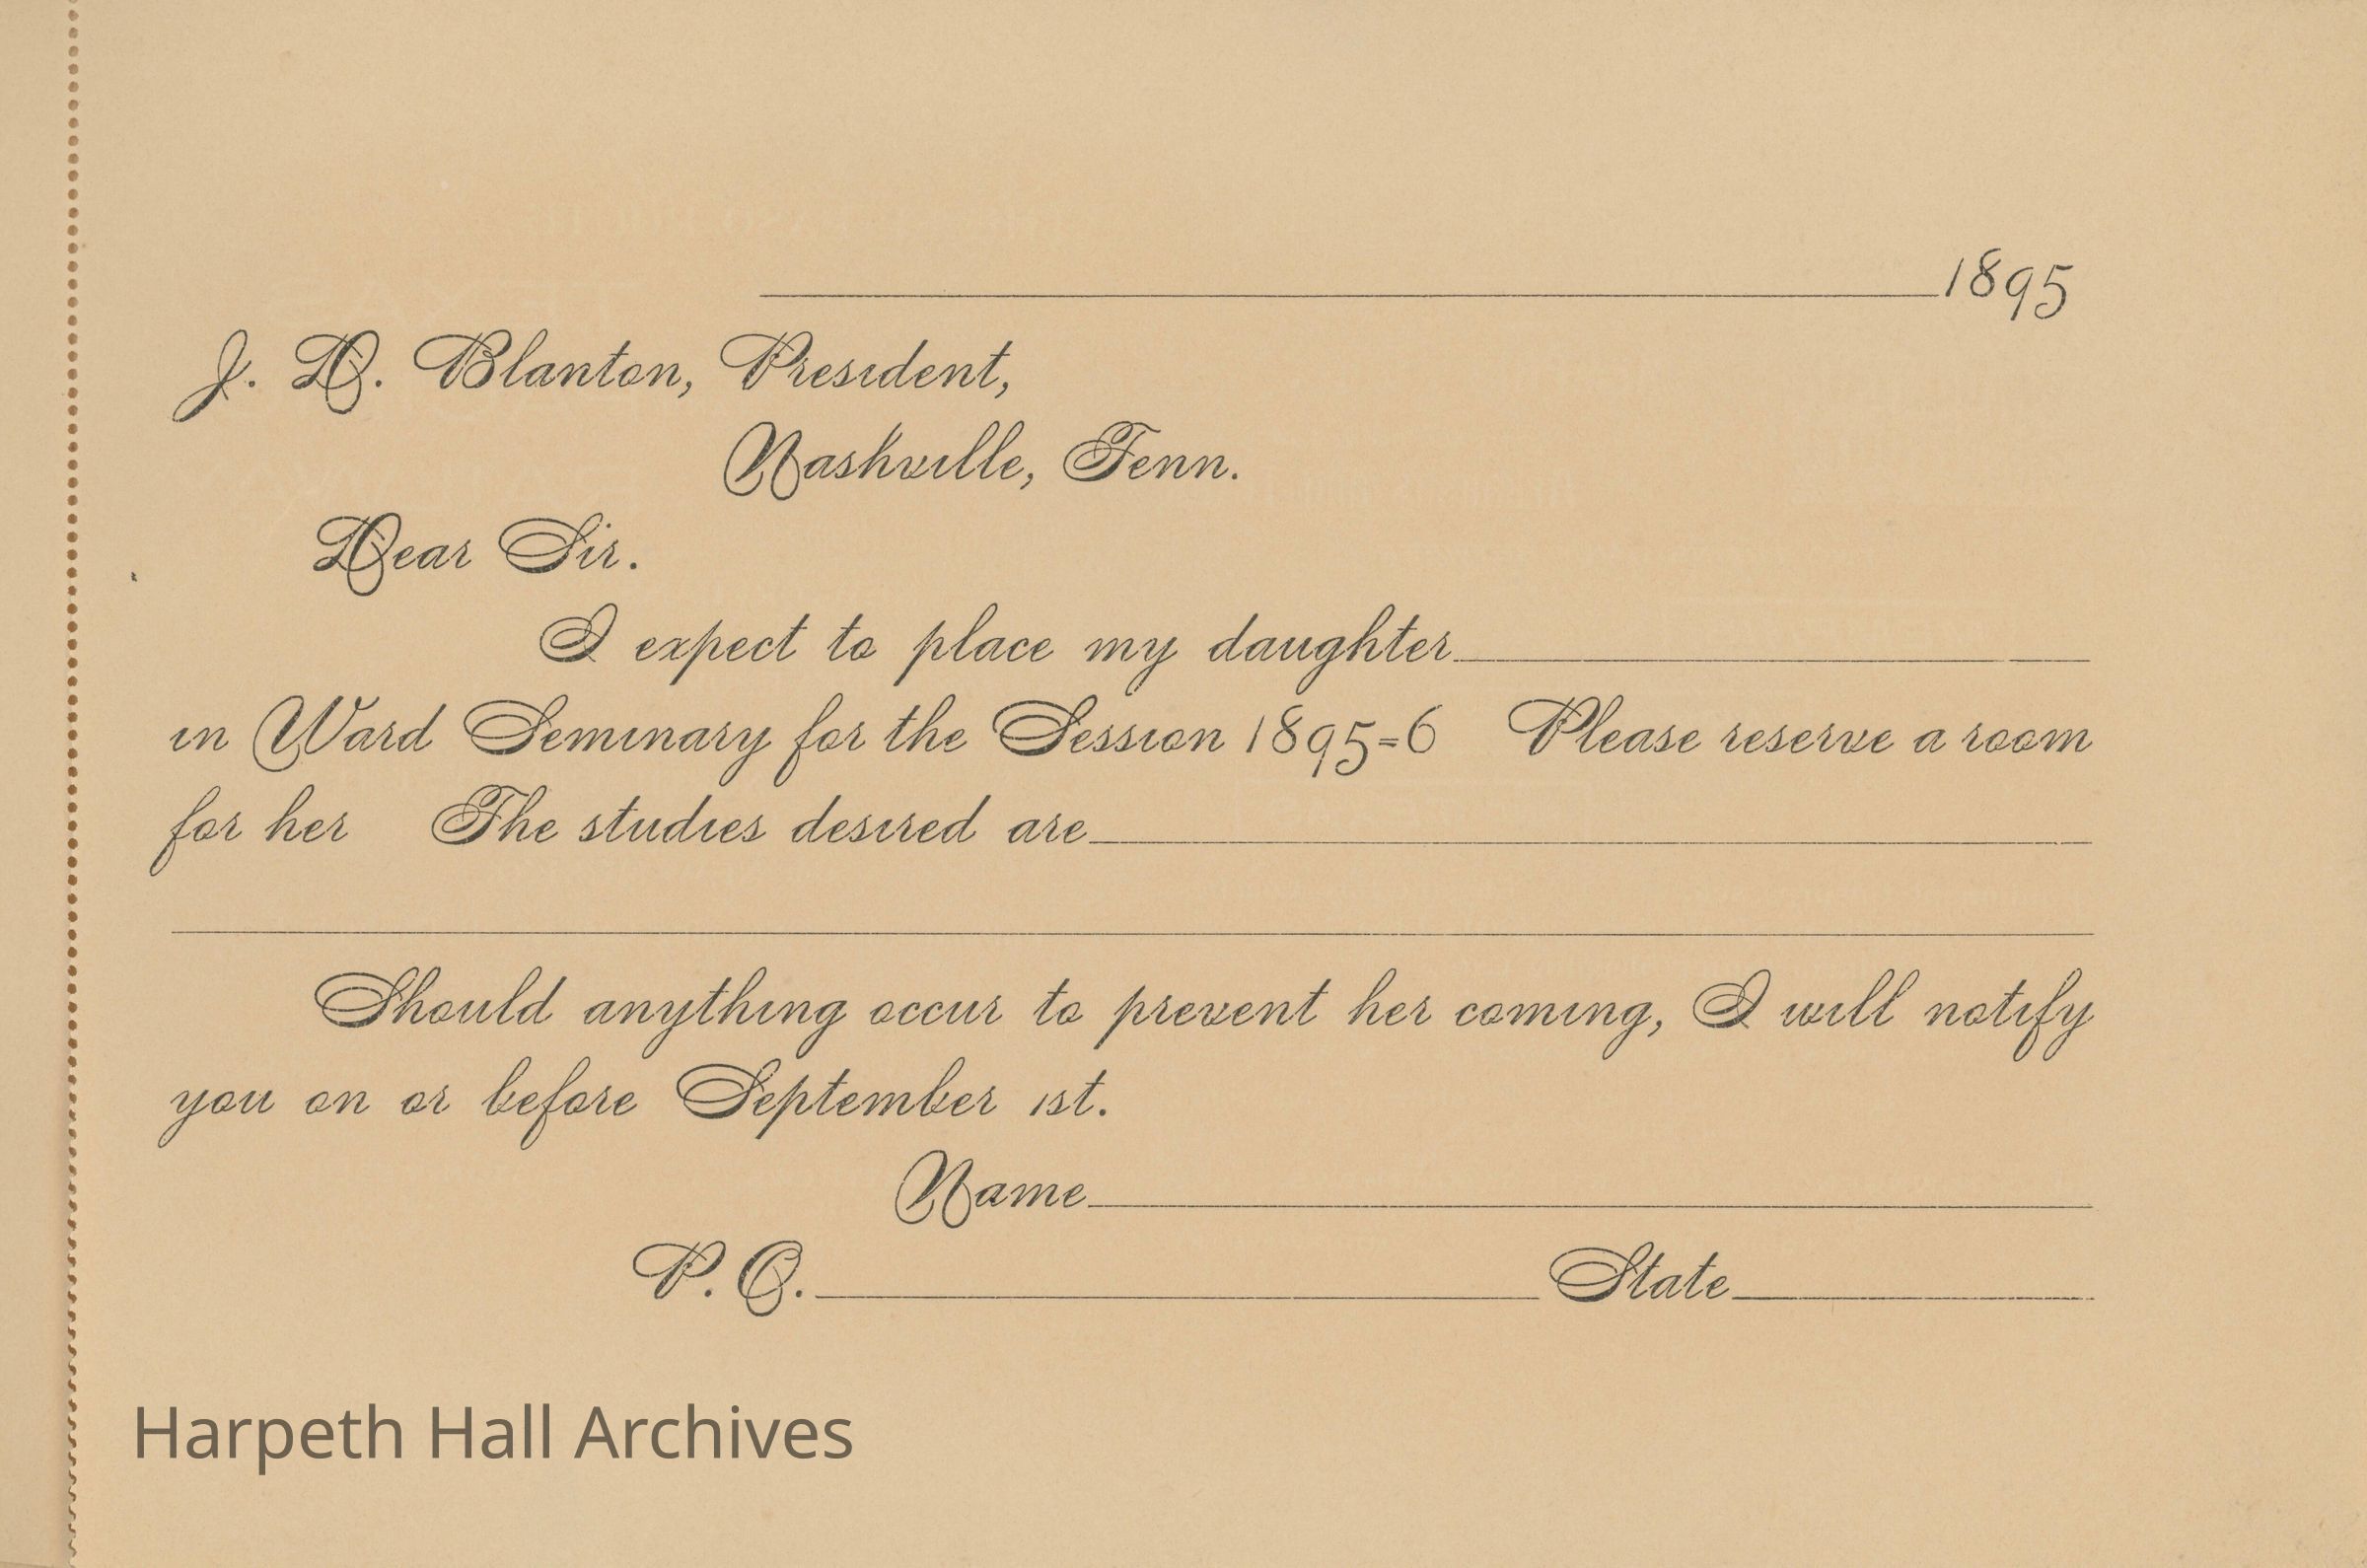 1895
J. D. Blanton, President,
Nashville, Tenn.
Dear Sir.
I expect to place my daughter
in Ward Seminary for the Session 1895=6 Please reserve a room
for her The studies desired are
Should anything occur to prevent her coming, I will notify
you on or before September 1st.
Name
P. O. State
Harpeth Hall Archives